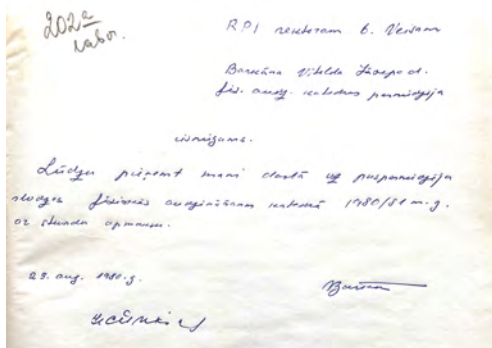 202a
labor.
RPI rektoram b. Veisam
Barkāna Vitolda Jāzepa d.
fiz. audz. katedras pasniedzēja
iesniegums.
Lūdzu pieņemt mani darbā uz puspasniedzēja
slodzes fiziskās audzināšanas katedrā 1980/81 m.g.
ar stundu apmaksu.
29. aug. 1980.g.